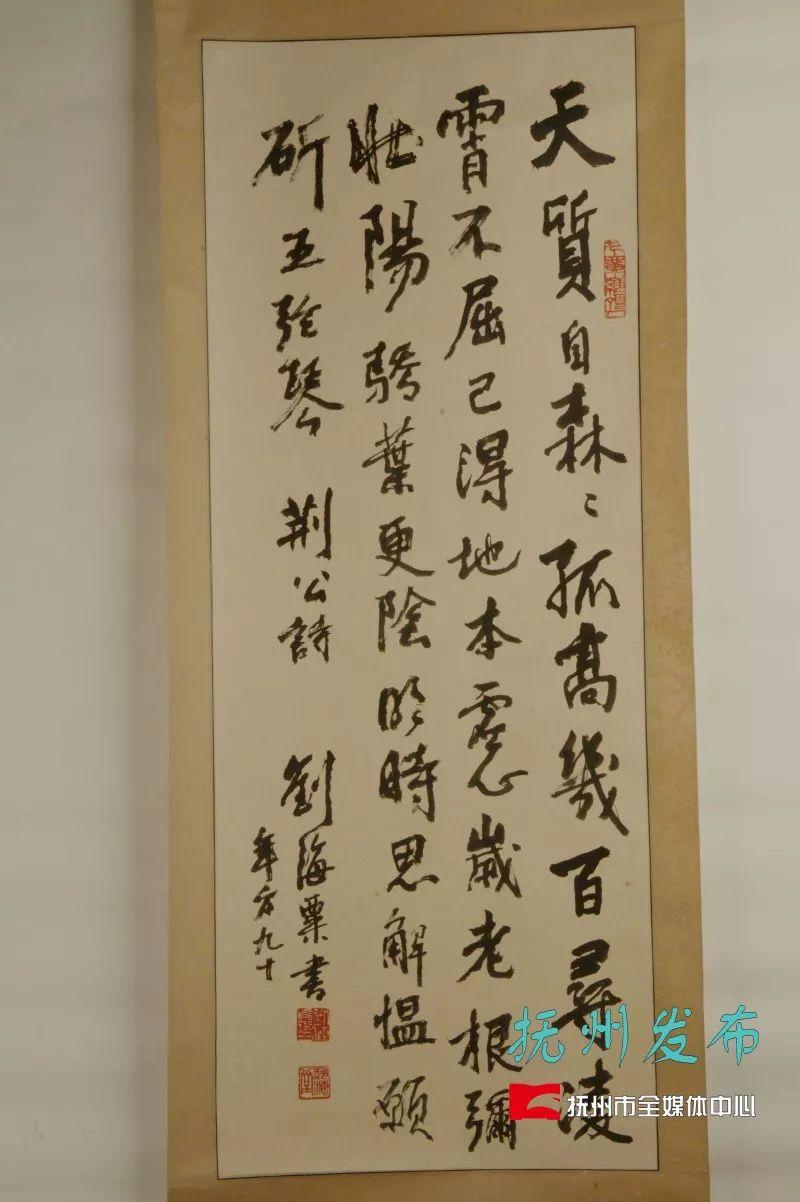 天質自森〻孤高幾百尋凌
霄不屈己得地本虛心歲老根彌
壯陽驕葉更陰明時思解愠願
斫五弦琴 荆公詩 劉海粟書
年方九十
抚州发布
抚州市全媒体中心